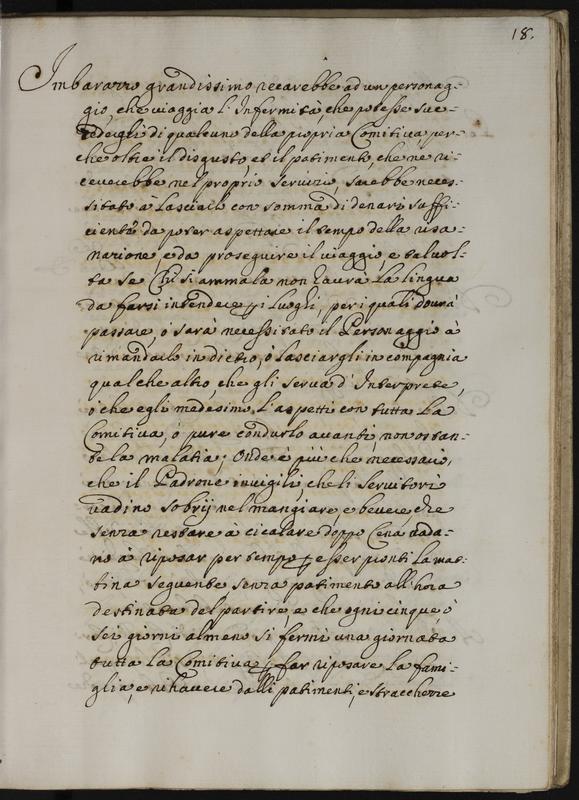 18.
Imbarazzo grandissimo recarebbe ad un personag-
gio, che viaggia l'Infermità, che potesse suc-
cedergli di qualcuno della propria Comitiva, per-
che oltre il disgusto, et il patimento, che ne ri-
ceverebbe nel proprio servizio, sarebbe neces-
sitato à lasciarlo con somma di denari suffi-
cienti da poter aspettare il tempo della risa-
nazione, e da proseguire il viaggio, e talvol-
ta se chi si ammala non haurà la lingua
da farsi intendere p i luoghi, per i quali dourà
passare, ò sarà necessitato il Personaggio à
rimandarlo in dietro, ò lasciargli in compagnia
qualche altro, che gli serva d'Interprete,
ò che egli medesimo l'aspetti con tutta la
Comitiva, ò pure condurlo avanti, non ostan-
te la malatia; Onde è più che necessario,
che il Padrone invigili, che li servitori
vadino sobrij nel mangiare e bevere che
senza restare à cicalare doppo Cena vada-
no à riposar per tempo p esser pronti la mat-
tina seguente senza patimento all'hora
destinata del partire, e che ogni cinque, ò
sei giorni almeno si fermi una giornata
tutta la Comitiva p far riposare la fami-
glia, e rihavere dalli patimenti, e stracchezze